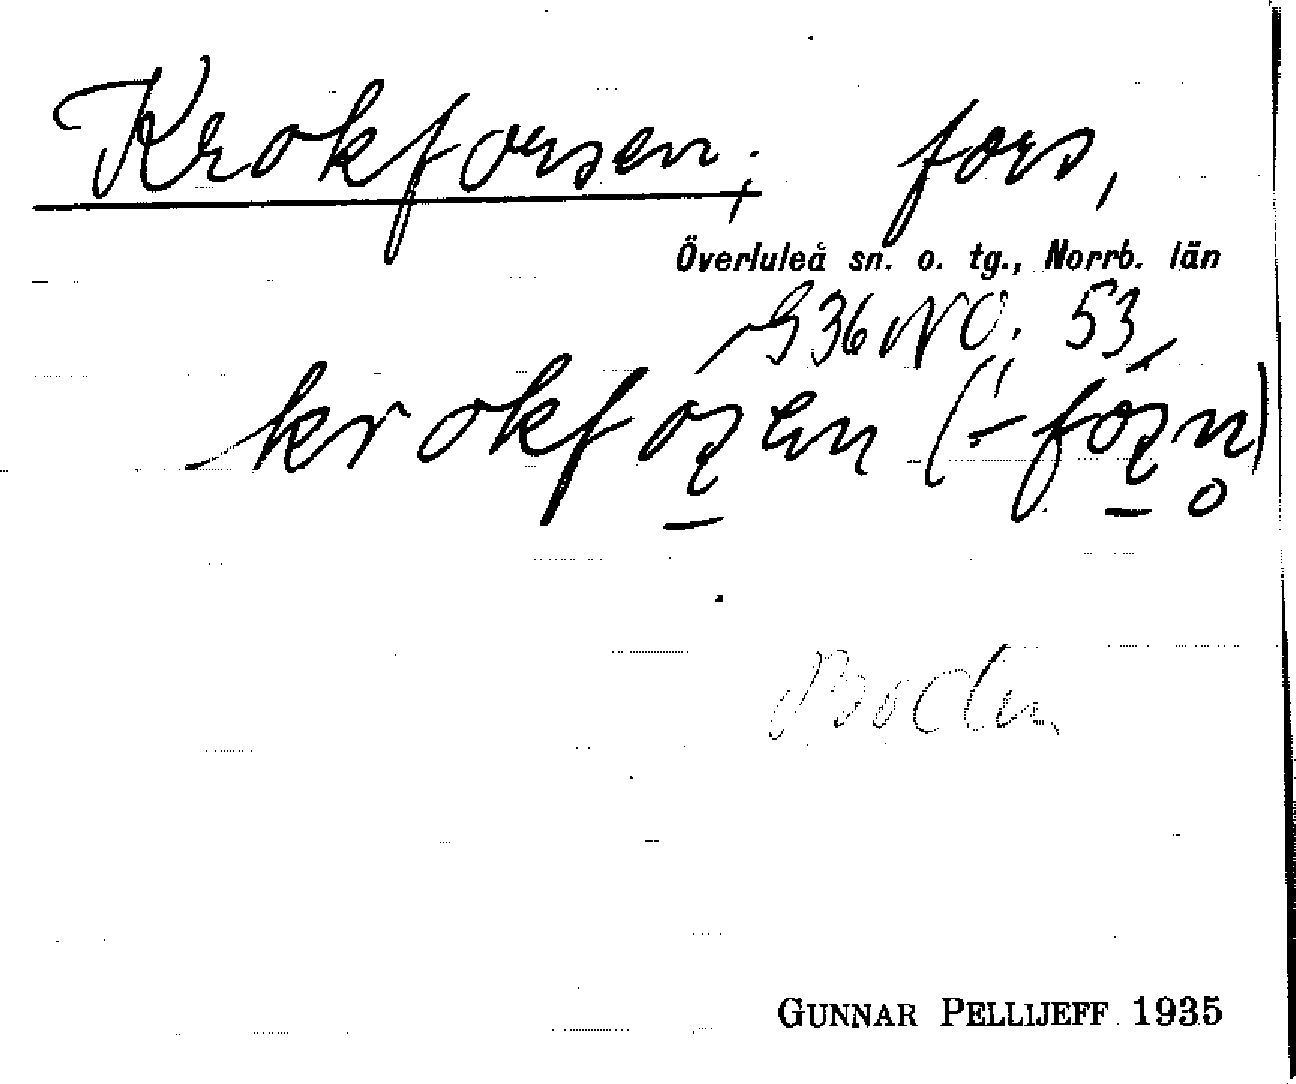 Krokforsen; fors,
Överluleå sn. o. tg., Norrb. län
G 36 NO. 53,
krokfoʂen (-foʂn̥)
Boden
GUNNAR PELLIJEFF 1935